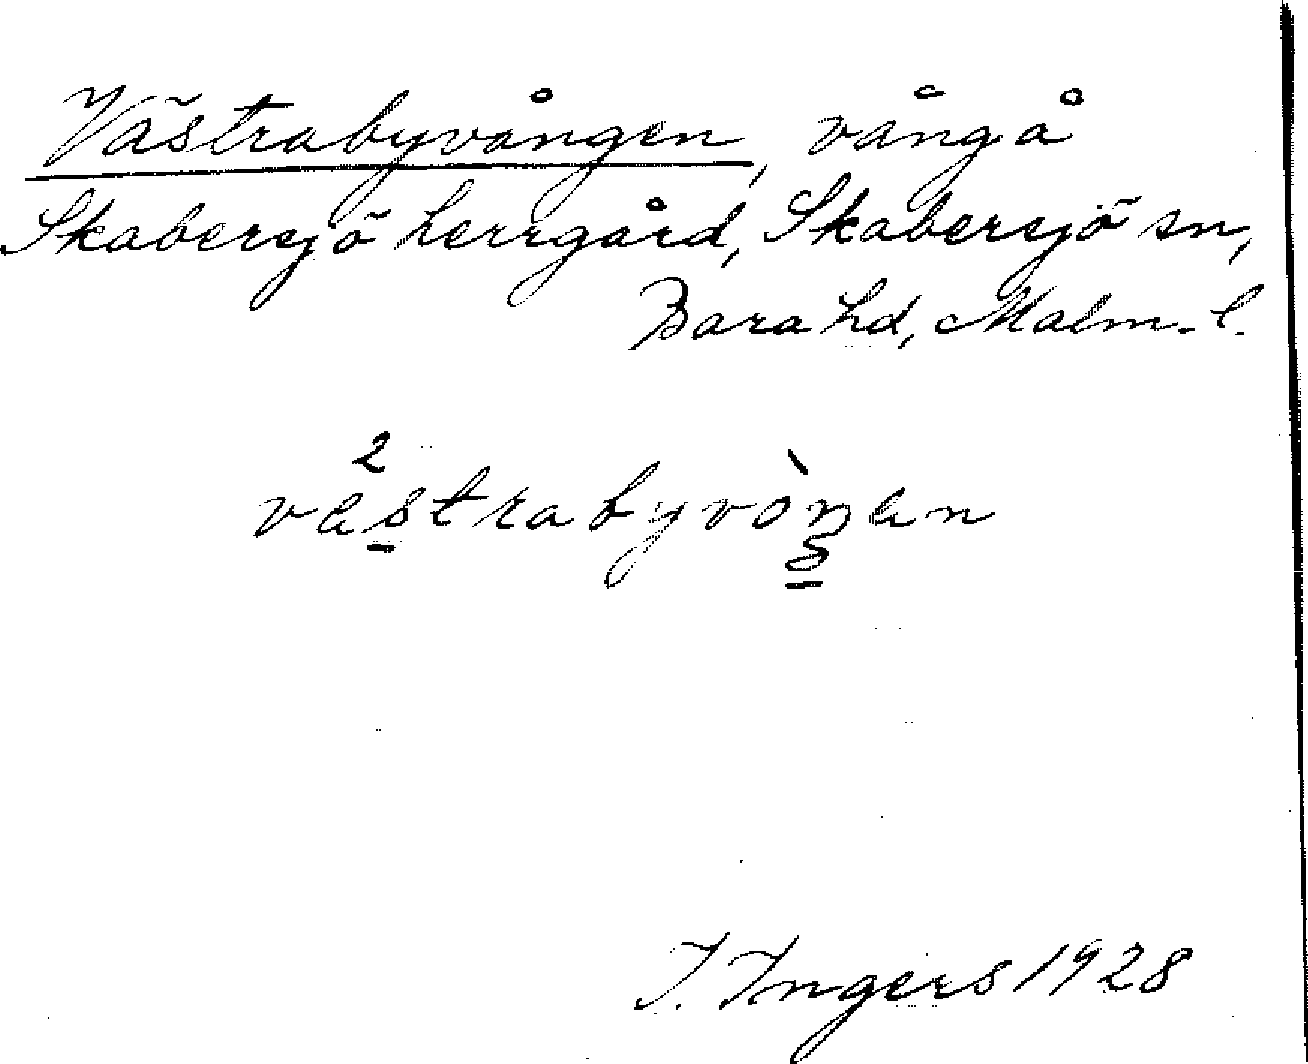 Västrabyvången, vång å
Skabersjö herrgård, Skabersjö sn,
Bara hd, Malm. l.
I. Ingers 1928